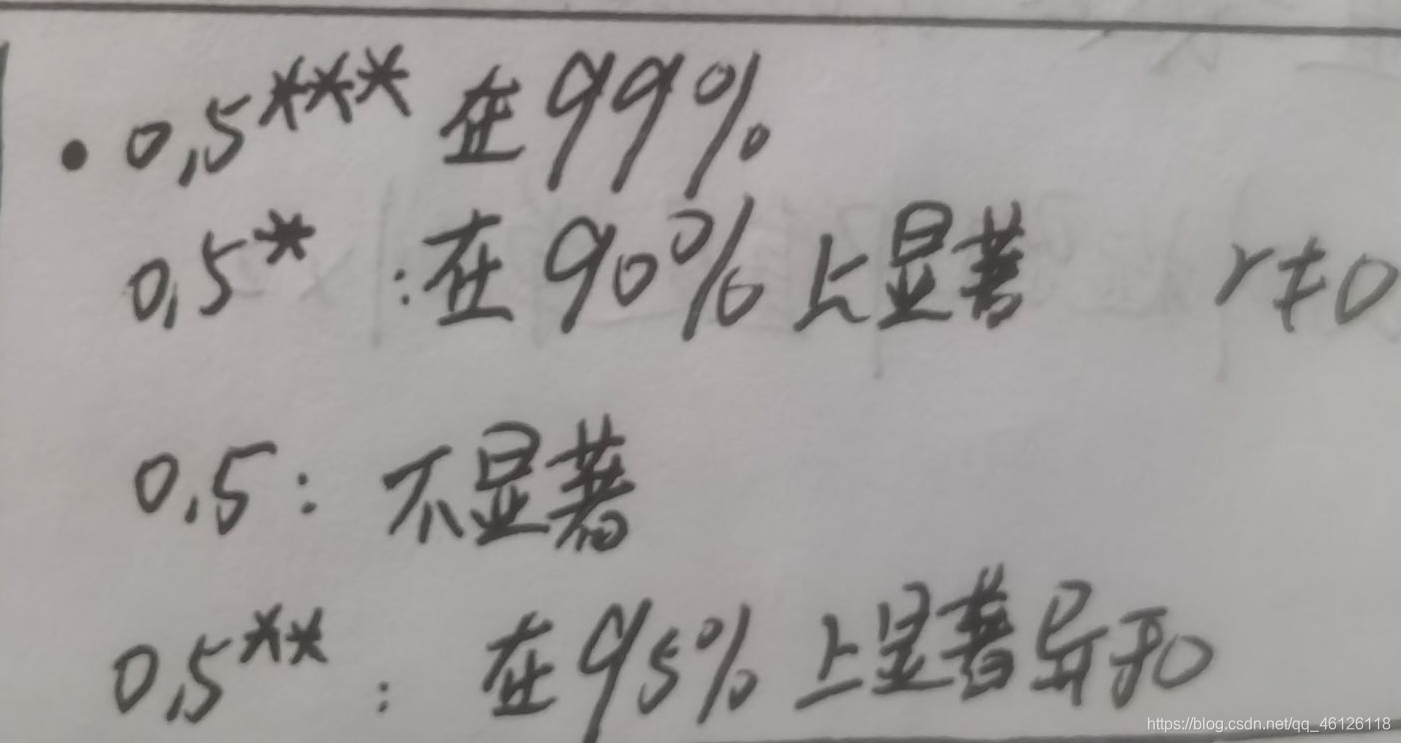 • 0.5*** 在99%
0.5* :在90%上显著 r≠0
0.5: 不显著
0.5** : 在95%上显著异于0
https://blog.csdn.net/qq_46126118